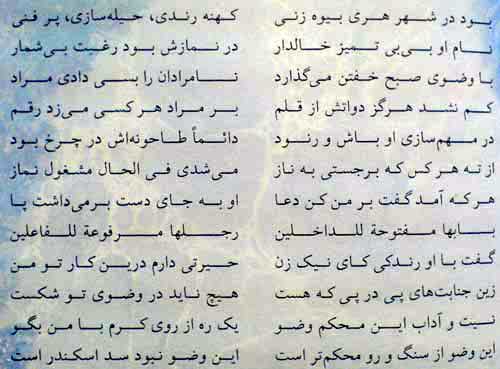 بود در شهر هری بیوه زنی کهنه رندی، حیله‌سازی، پر فنی
نام او بی‌بی تمیز خالدار در نمازش بود رغبت بی‌شمار
با وضوی صبح خفتن می‌گذارد نامرادان را بسی دادی مراد
کم نشد هرگز دواتش از قلم بر مراد هر کسی می‌زد رقم
در مهم‌سازی او باش و رنود دائماً طاحونه‌اش در چرخ بود
از ته هر کس که برجستی به ناز می‌شدی فی الحال مشغول نماز
هر که آمد گفت بر من کن دعا او به جای دست برمی‌داشت پا
بابها مفتوحة للداخلین رجلها مرفوعة للفاعلین
گفت با او رندکی کای نیک زن حیرتی دارم درین کار تو من
زین جنابت‌های پی در پی که هست هیچ ناید در وضوی تو شکست
نیت و آداب این محکم وضو یک ره از روی کرم با من بگو
این وضو از سنگ و رو محکم‌تر است این وضو نبود سد اسکندر است